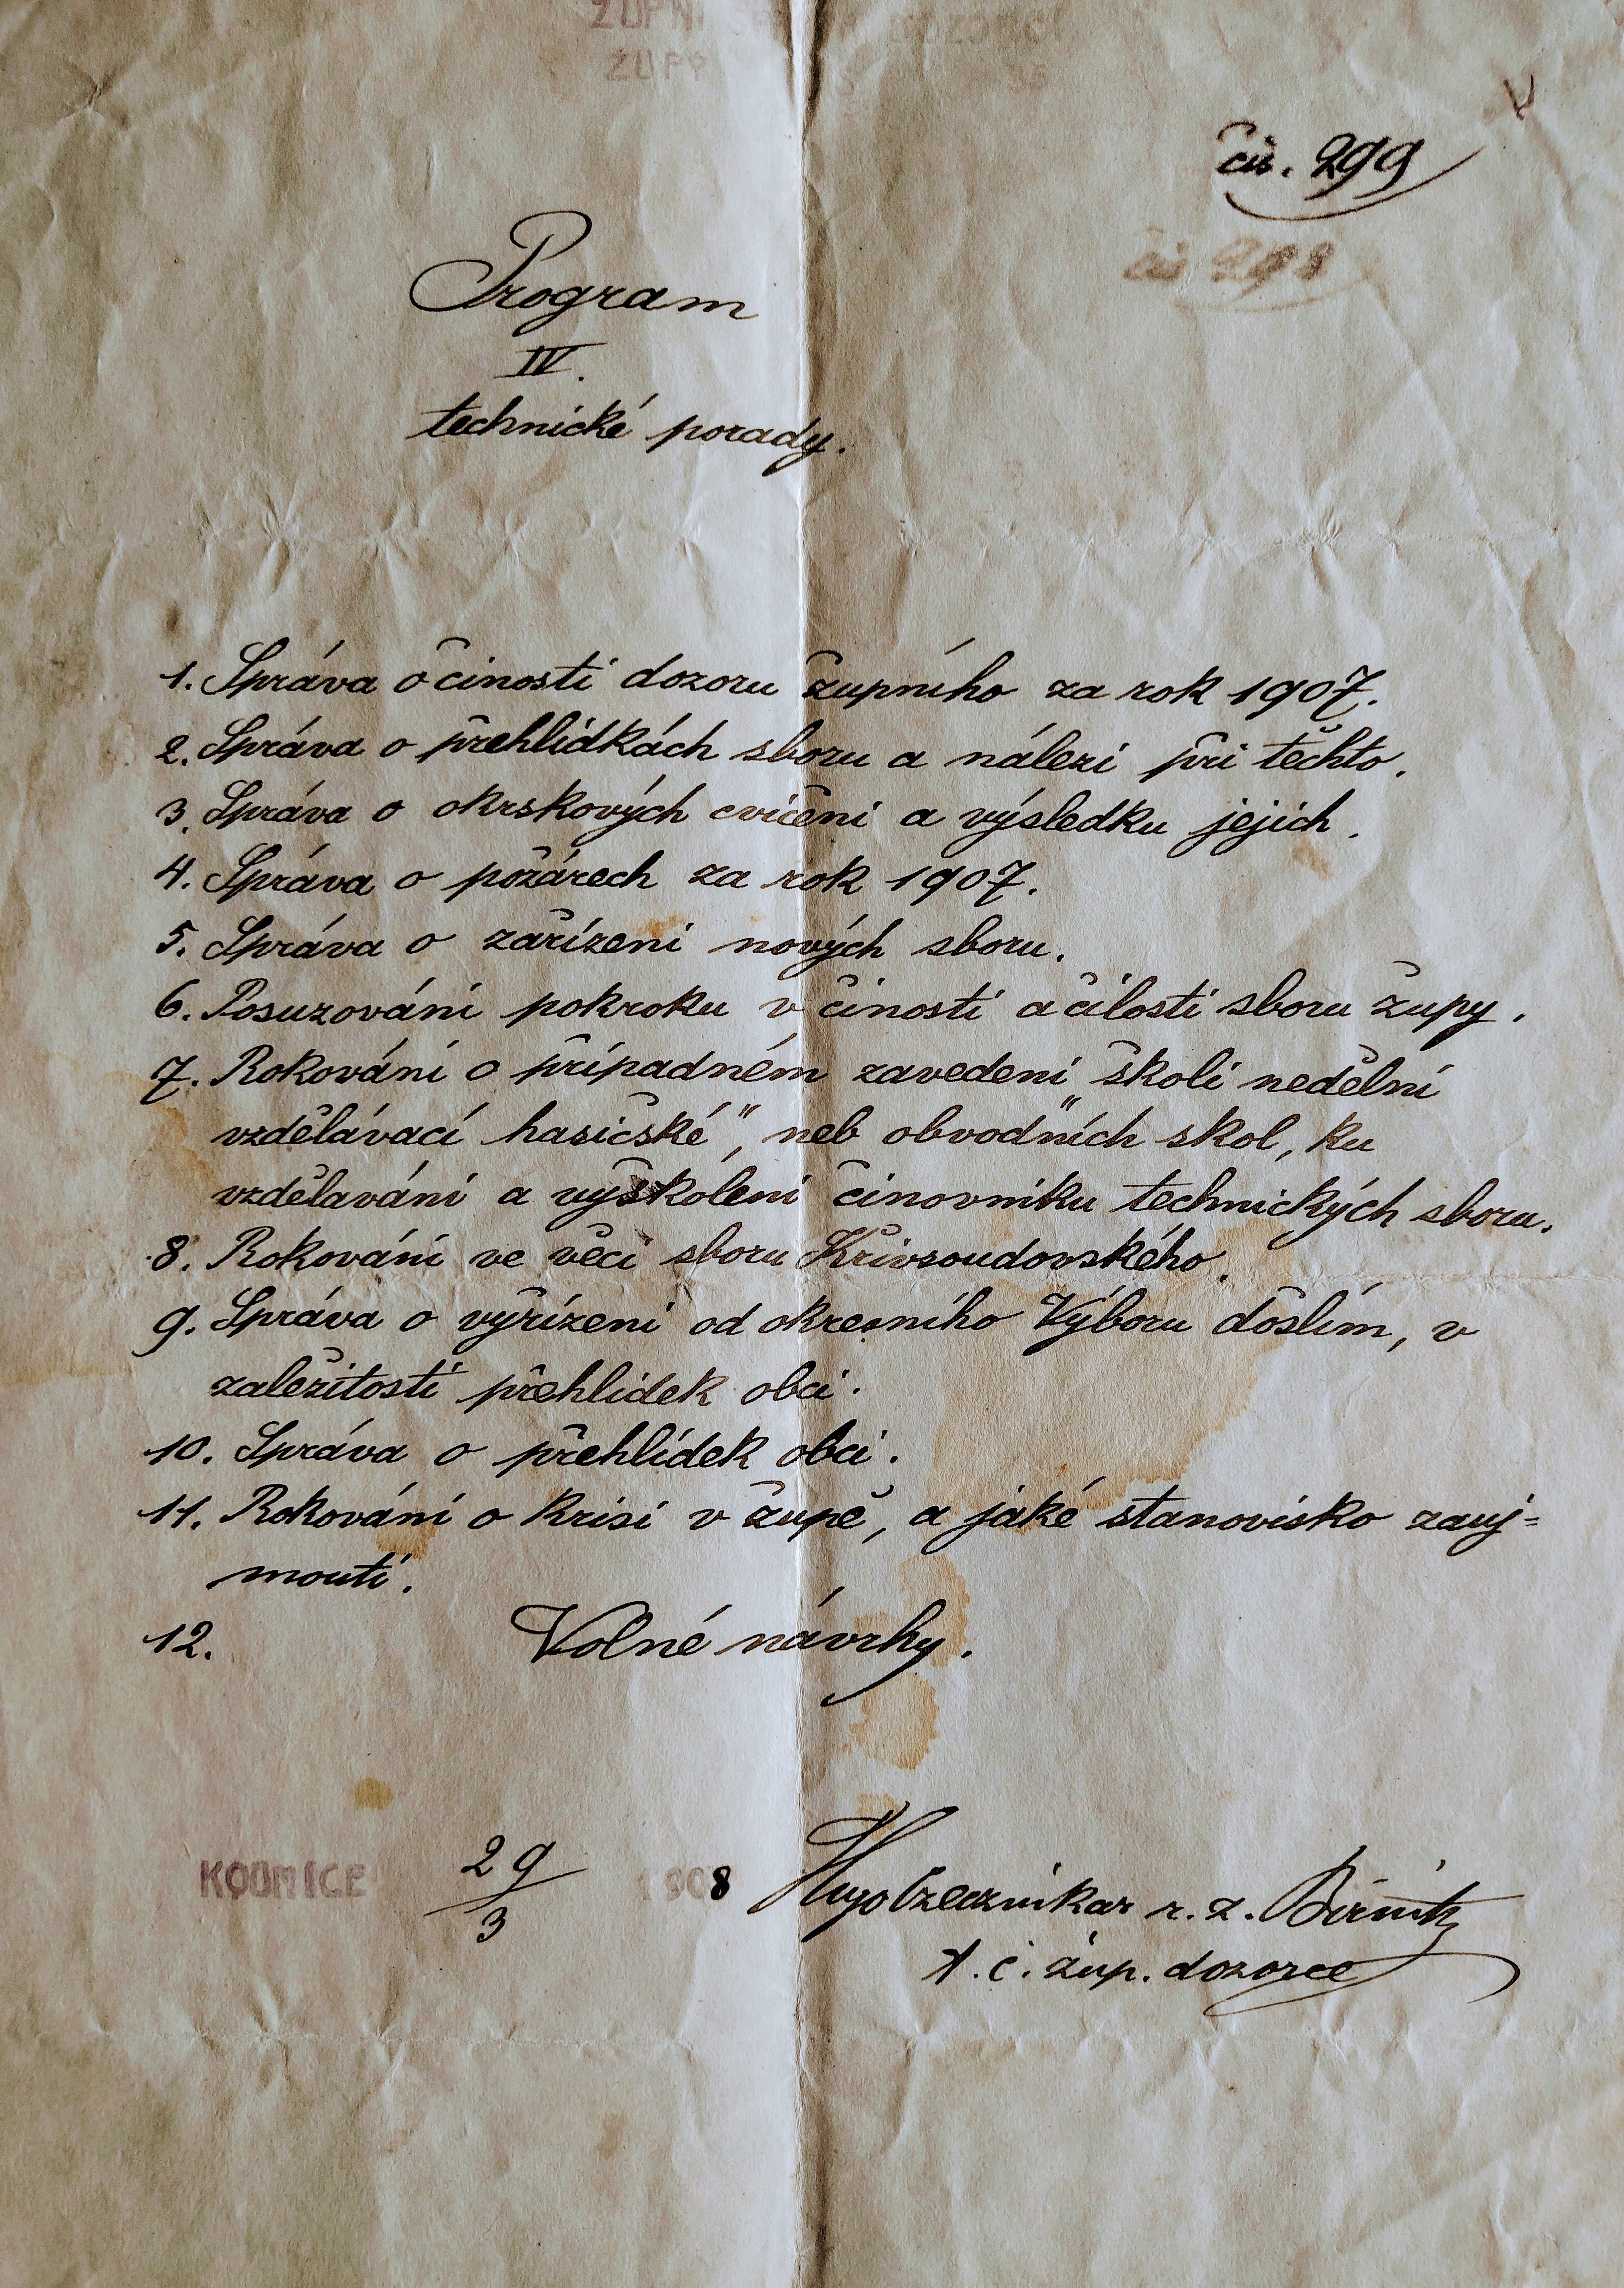 ŽUPNÍ DOZORCE
ŽUPY
čís. 299
čís 298
Program
IV.
technické porady.
1. Správa o činosti dozoru župního za rok 1907.
2. Správa o přehlídkách sboru a nálezi při těchto.
3. Správa o okrskových cvičeni a výsledku jejich.
4. Správa o požárech za rok 1907.
5. Správa o zařízeni nových sboru.
6. Posuzováni pokroku v činosti a čilosti sboru župy.
7. Rokováni o připadném zavedeni školi nedělní
vzdělávací hasičské", neb obvodních skol, ku
vzdělaváni a vyškóleni činovniku technických sboru.
8. Rokováni ve věci sboru Křivsoudovského.
9. Správa o vyřízeni od okresního Výboru došlím, v
zaležitosti přehlidek obci.
10. Správa o přehlídek obci.
11. Rokováni o krisi v župě, a jaké stanovisko zauj=
mouti.
12. Volné návrhy.
KOUNICE 29/3 1908 Hugo r. z.
t. č. žup. dozorce